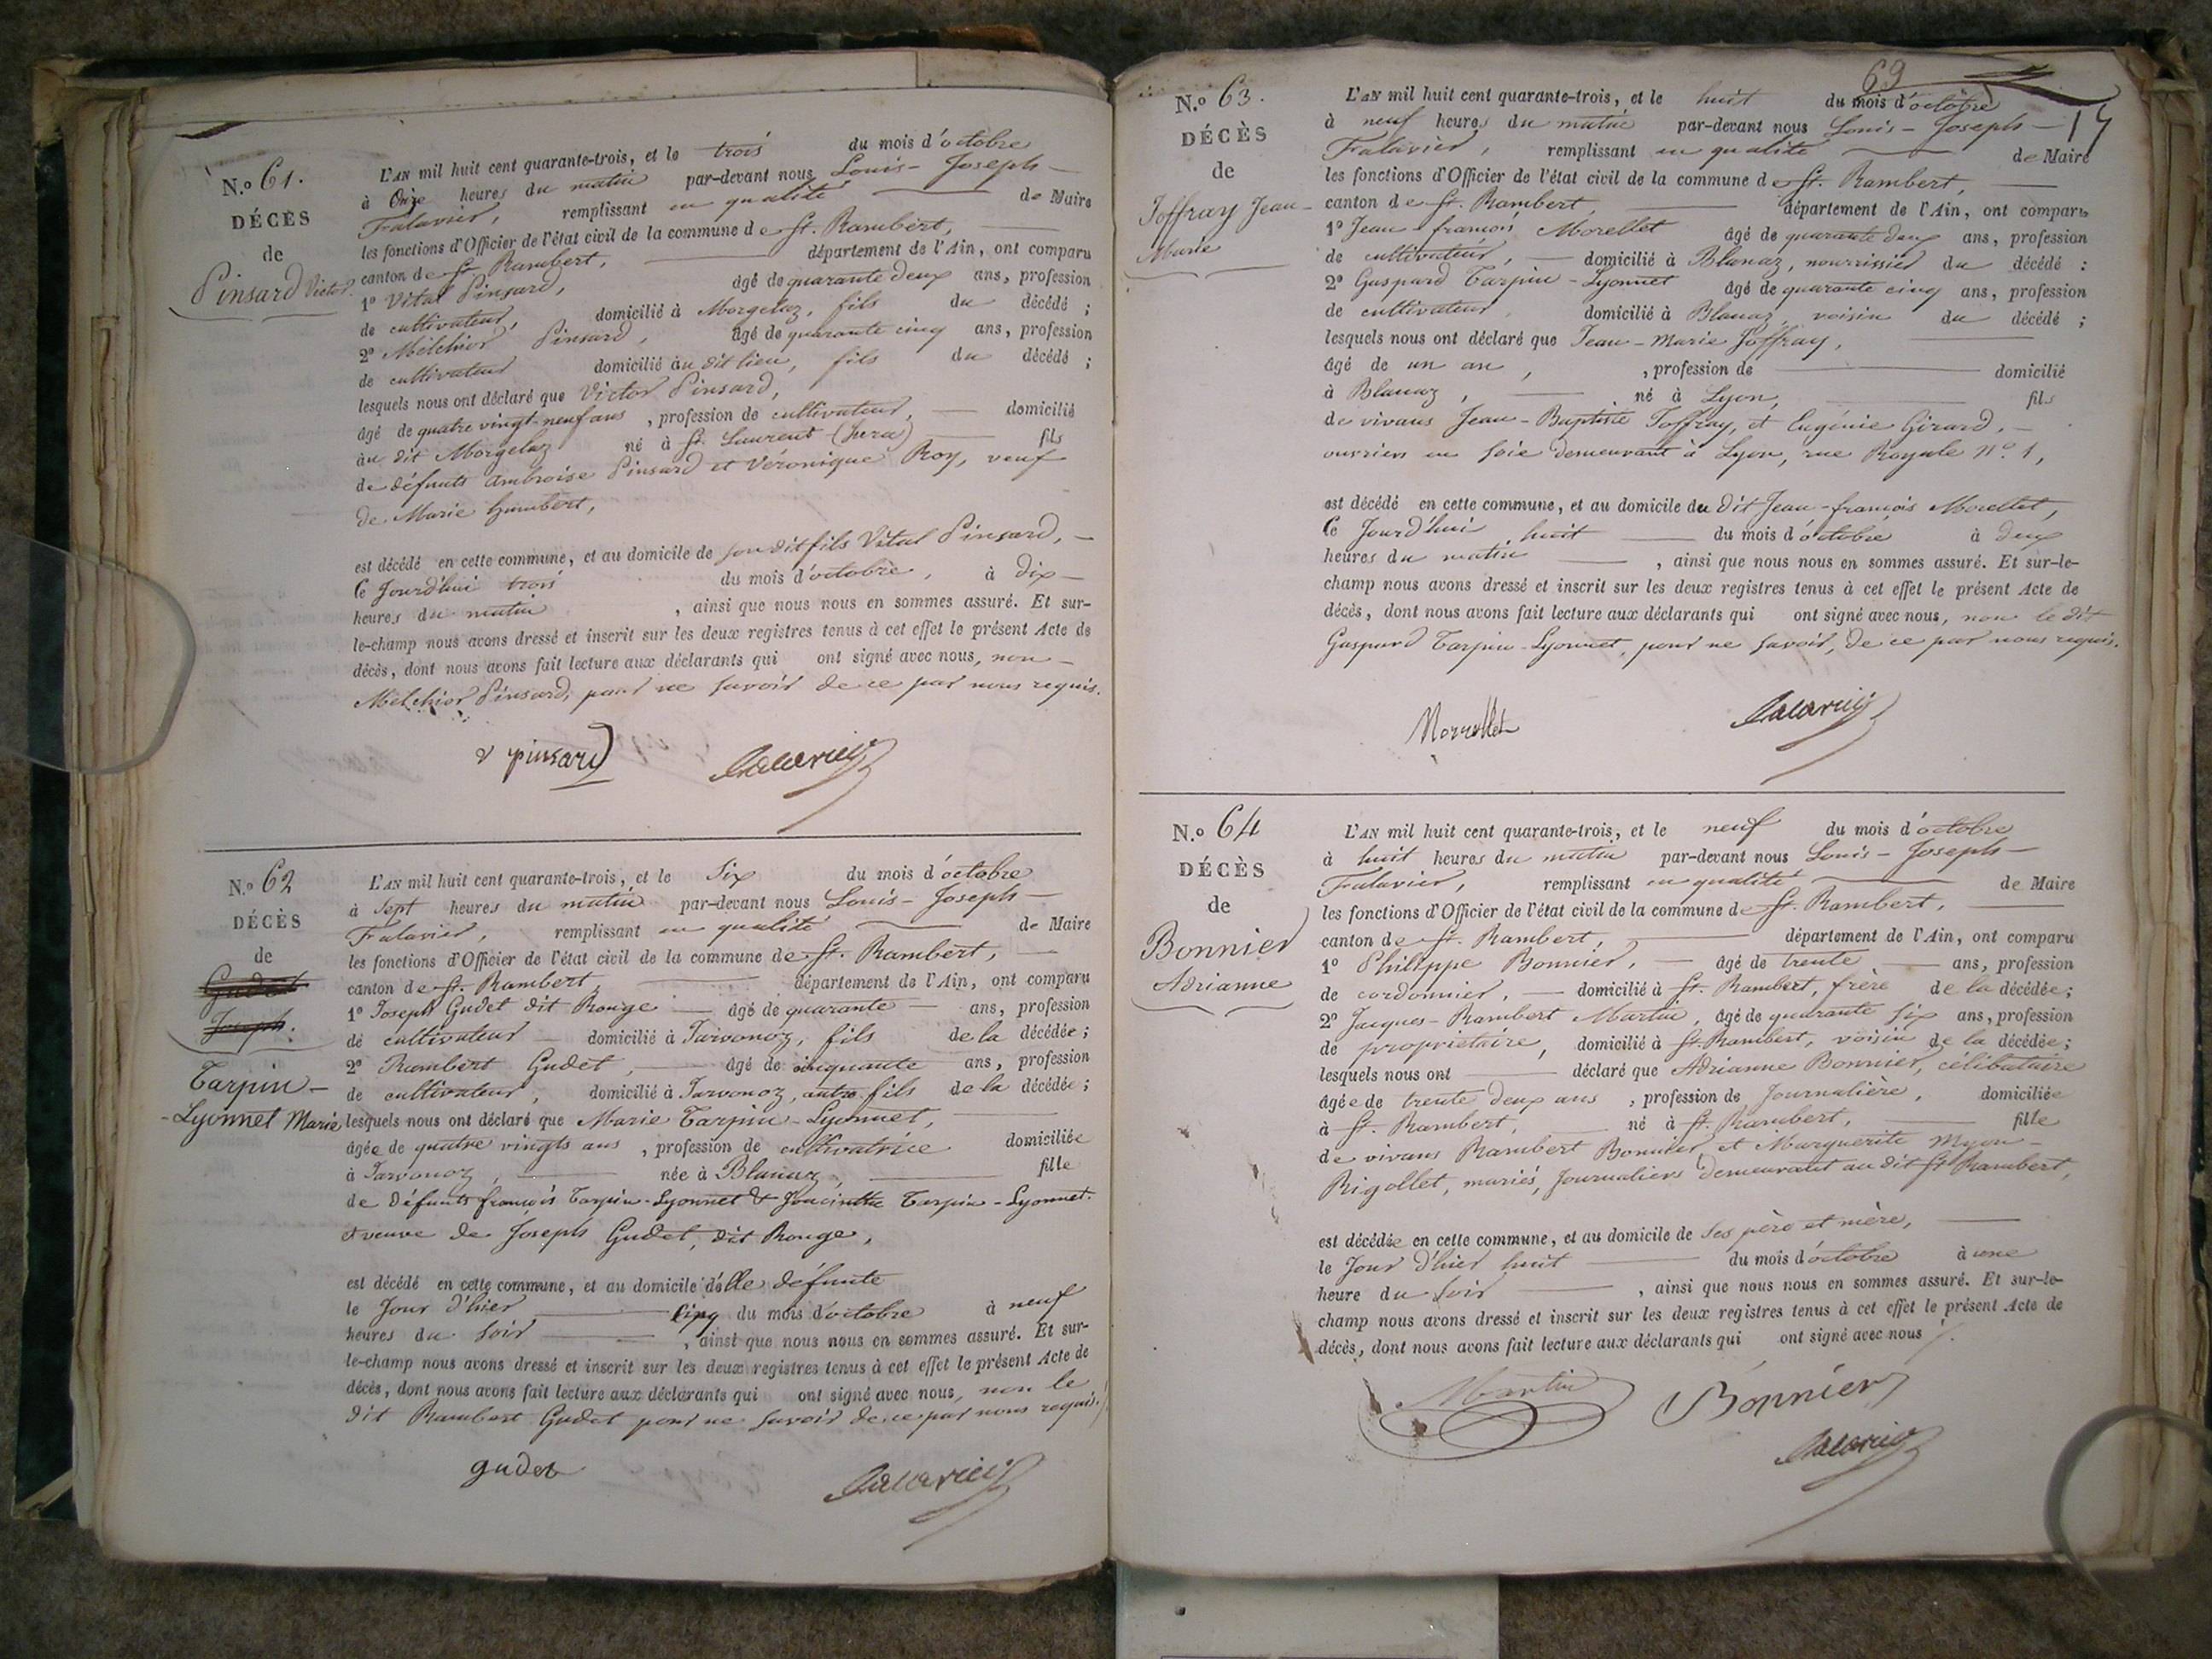 N.o 61.
DÉCÈS
de
Pinsard Victor.
L'AN mil huit cent quarante-trois, et le trois du mois d'octobre
à Onze heures du matin par-devant nous Louis-Joseph
Falavier, remplissant en qualité de Maire
les fonctions d'Officier de l'état civil de la commune de St. Rambert,
canton de St. Rambert, département de l'Ain, ont comparu
1o Vital Pinsard, âgé de quarante deux ans, profession
de cultivateur, domicilié à Morgelaz, fils du décédé ;
2o Melchior Pinsard, âgé de quarante cinq ans, profession
de cultivateur domicilié au dit lieu, fils du décédé ;
lesquels nous ont déclaré que Victor Pinsard,
âgé de quatre vingt-neuf ans, profession de cultivateur, domicilié
au dit Morgelaz né à St. Laurent (Jura) fils
de défunts Ambroise Pinsard et Véronique Roy, veuf
de Marie Humbert,
est décédé en cette commune, et au domicile de son dit fils Vital Pinsard,
Ce Jourd'hui trois du mois d'octobre, à dix
heures du matin, ainsi que nous nous en sommes assuré. Et sur-
le-champ nous avons dressé et inscrit sur les deux registres tenus à cet effet le présent Acte de
décès, dont nous avons fait lecture aux déclarants qui ont signé avec nous, non
Melchior Pinsard, pour ne savoir de ce par nous requis.
v pinsard Falavier
N.o 62
DÉCÈS
de
Gudet
Joseph.
Tarpin-
-Lyonnet Marie
L'AN mil huit cent quarante-trois, et le Six du mois d'octobre
à Sept heures du matin par-devant nous Louis-Joseph
Falavier, remplissant en qualité de Maire
les fonctions d'Officier de l'état civil de la commune de St. Rambert,
canton de St. Rambert, département de l'Ain, ont comparu
1o Joseph Gudet dit Rouge âgé de quarante ans, profession
de cultivateur domicilié à Jarvonoz, fils de la décédée ;
2o Rambert Gudet, âgé de cinquante ans, profession
de cultivateur, domicilié à Jarvonoz, autre fils de la décédée ;
lesquels nous ont déclaré que Marie Tarpin-Lyonnet,
âgée de quatre vingts ans, profession de cultivatrice domiciliée
à Jarvonoz, née à Blanaz, fille
de défunts françois Tarpin-Lyonnet & Jhacinthe Tarpin-Lyonnet.
et veuve de Joseph Gudet, dit Rouge,
est décédé en cette commune, et au domicile d'elle défunte
le Jour d'hier Cinq du mois d'octobre à neuf
heures du soir, ainsi que nous nous en sommes assuré. Et sur-
le-champ nous avons dressé et inscrit sur les deux registres tenus à cet effet le présent Acte de
décès, dont nous avons fait lecture aux déclarants qui ont signé avec nous, non le
dit Rambert Gudet pour ne savoir de ce par nous requis.
gudet Falavier
69
17
N.o 63.
DÉCÈS
de
Joffray Jean-
Marie
L'AN mil huit cent quarante-trois, et le huit du mois d'octobre
à neuf heures du matin par-devant nous Louis-Joseph
Falavier, remplissant en qualité de Maire
les fonctions d'Officier de l'état civil de la commune de St. Rambert,
canton de St. Rambert, département de l'Ain, ont comparu
1o Jean-françois Morellet âgé de quarante deux ans, profession
de cultivateur, domicilié à Blanaz, nourrissier du décédé :
2o Gaspard Tarpin-Lyonnet âgé de quarante cinq ans, profession
de cultivateur, domicilié à Blanaz, voisin du décédé ;
lesquels nous ont déclaré que Jean-Marie Joffray,
âgé de un an, profession de domicilié
à Blanaz, né à Lyon, fils
de vivans Jean-Baptiste Joffray, et Eugénie Girard,
ouvriers en soie demeurant à Lyon, rue Royale No. 1,
est décédé en cette commune, et au domicile du dit Jean-françois Morellet,
Ce Jourd'hui huit du mois d'octobre à deux
heures du matin, ainsi que nous nous en sommes assuré. Et sur-le-
champ nous avons dressé et inscrit sur les deux registres tenus à cet effet le présent Acte de
décès, dont nous avons fait lecture aux déclarants qui ont signé avec nous, non le dit
Gaspard Tarpin-Lyonnet, pour ne savoir, de ce par nous requis.
Morrellet Falavier
N.o 64
DÉCÈS
de
Bonnier
Adrianne
L'AN mil huit cent quarante-trois, et le neuf du mois d'octobre
à huit heures du matin par-devant nous Louis-Joseph
Falavier, remplissant en qualité de Maire
les fonctions d'Officier de l'état civil de la commune de St. Rambert,
canton de St. Rambert, département de l'Ain, ont comparu
1o Philippe Bonnier, âgé de trente ans, profession
de cordonnier, domicilié à St. Rambert, frère de la décédée ;
2o Jacques-Rambert Martin, âgé de quarante six ans, profession
de propriétaire, domicilié à St. Rambert, voisin de la décédée ;
lesquels nous ont déclaré que Adrianne Bonnier, célibataire
âgée de trente deux ans, profession de Journalière, domiciliée
à St. Rambert, né à St. Rambert, fille
de vivans Rambert Bonnier et Marguerite Myon-
Rigollet, mariés, Journaliers demeurant au dit St Rambert,
est décédée en cette commune, et au domicile de ses père et mère,
le Jour d'hier huit du mois d'octobre à une
heure du soir, ainsi que nous nous en sommes assuré. Et sur-le-
champ nous avons dressé et inscrit sur les deux registres tenus à cet effet le présent Acte de
décès, dont nous avons fait lecture aux déclarants qui ont signé avec nous /.
Martin Bonnier
Falavier